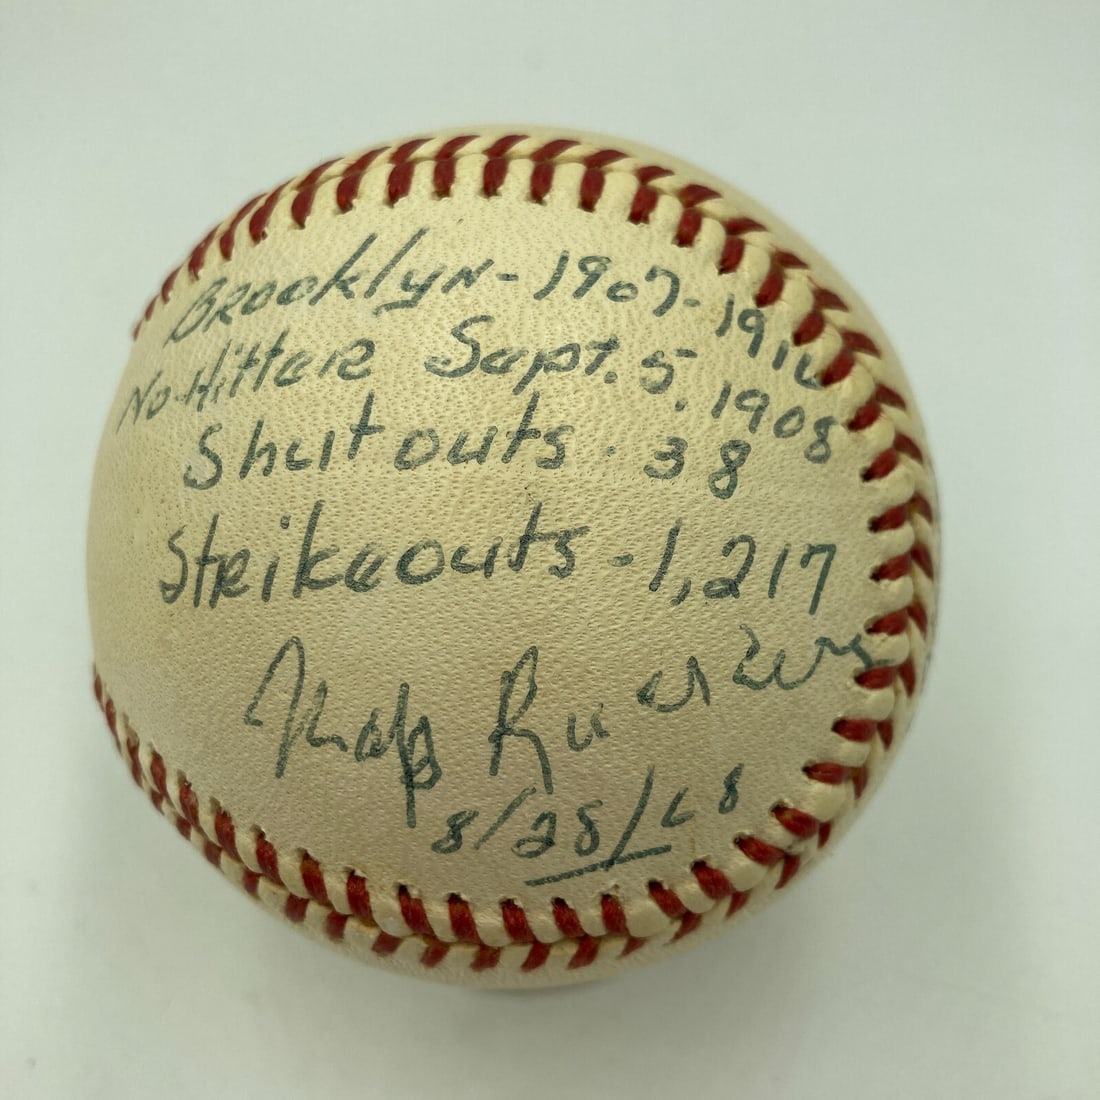 Brooklyn - 1907-1914
No-Hitter Sept. 5, 1908
Shutouts - 38
Strikeouts - 1,217
Nap Rucker
8/28/68